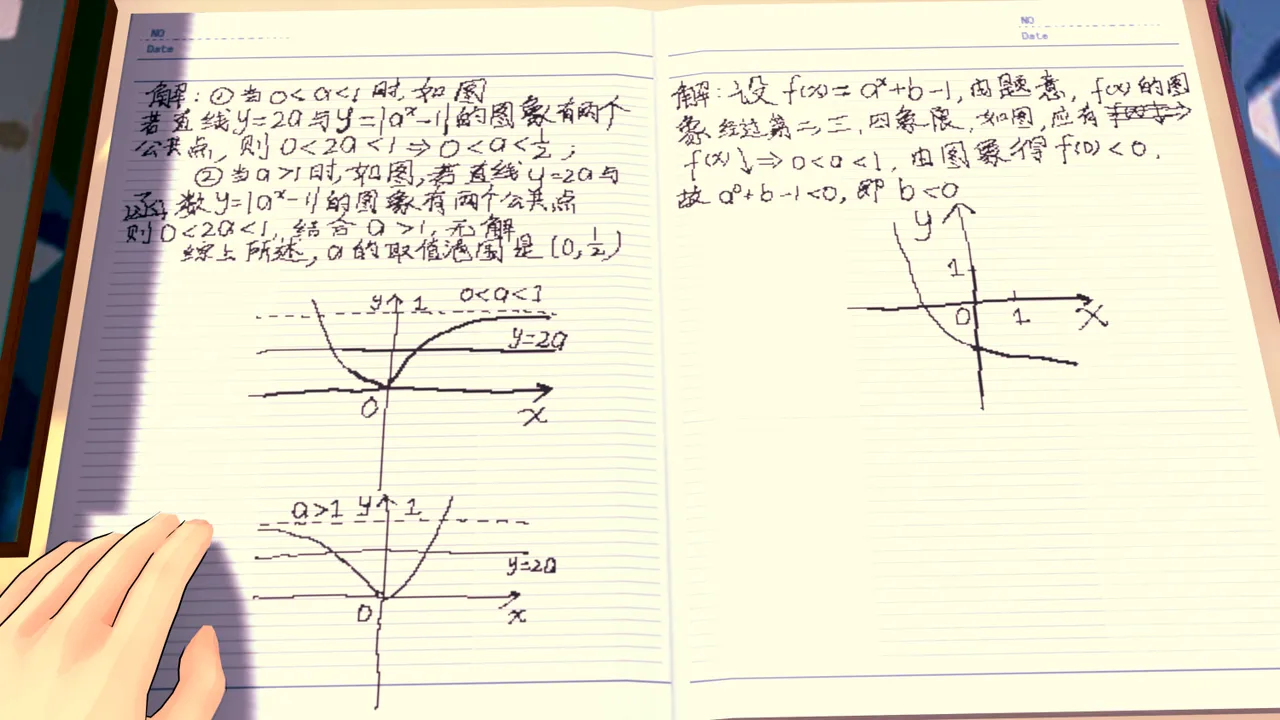 NO
Date
解：①当0<a<1时，如图
若直线y=2a与y=|aˣ-1|的图象有两个
公共点，则0<2a<1⇒0<a<½；
②当a>1时，如图，若直线y=2a与
函数y=|aˣ-1|的图象有两个公共点
则0<2a<1，结合a>1，无解
综上所述，a的取值范围是(0,½)
y 1 0<a<1
y=2a
0
x
a>1 y 1
y=2a
0
x
NO
Date
解：设f(x)=aˣ+b-1，由题意，f(x)的图
象经过第二，三，四象限，如图，应有
f(x)↓⇒0<a<1，由图象得f(0)<0.
故a⁰+b-1<0，即b<0
y
1
0 1 x